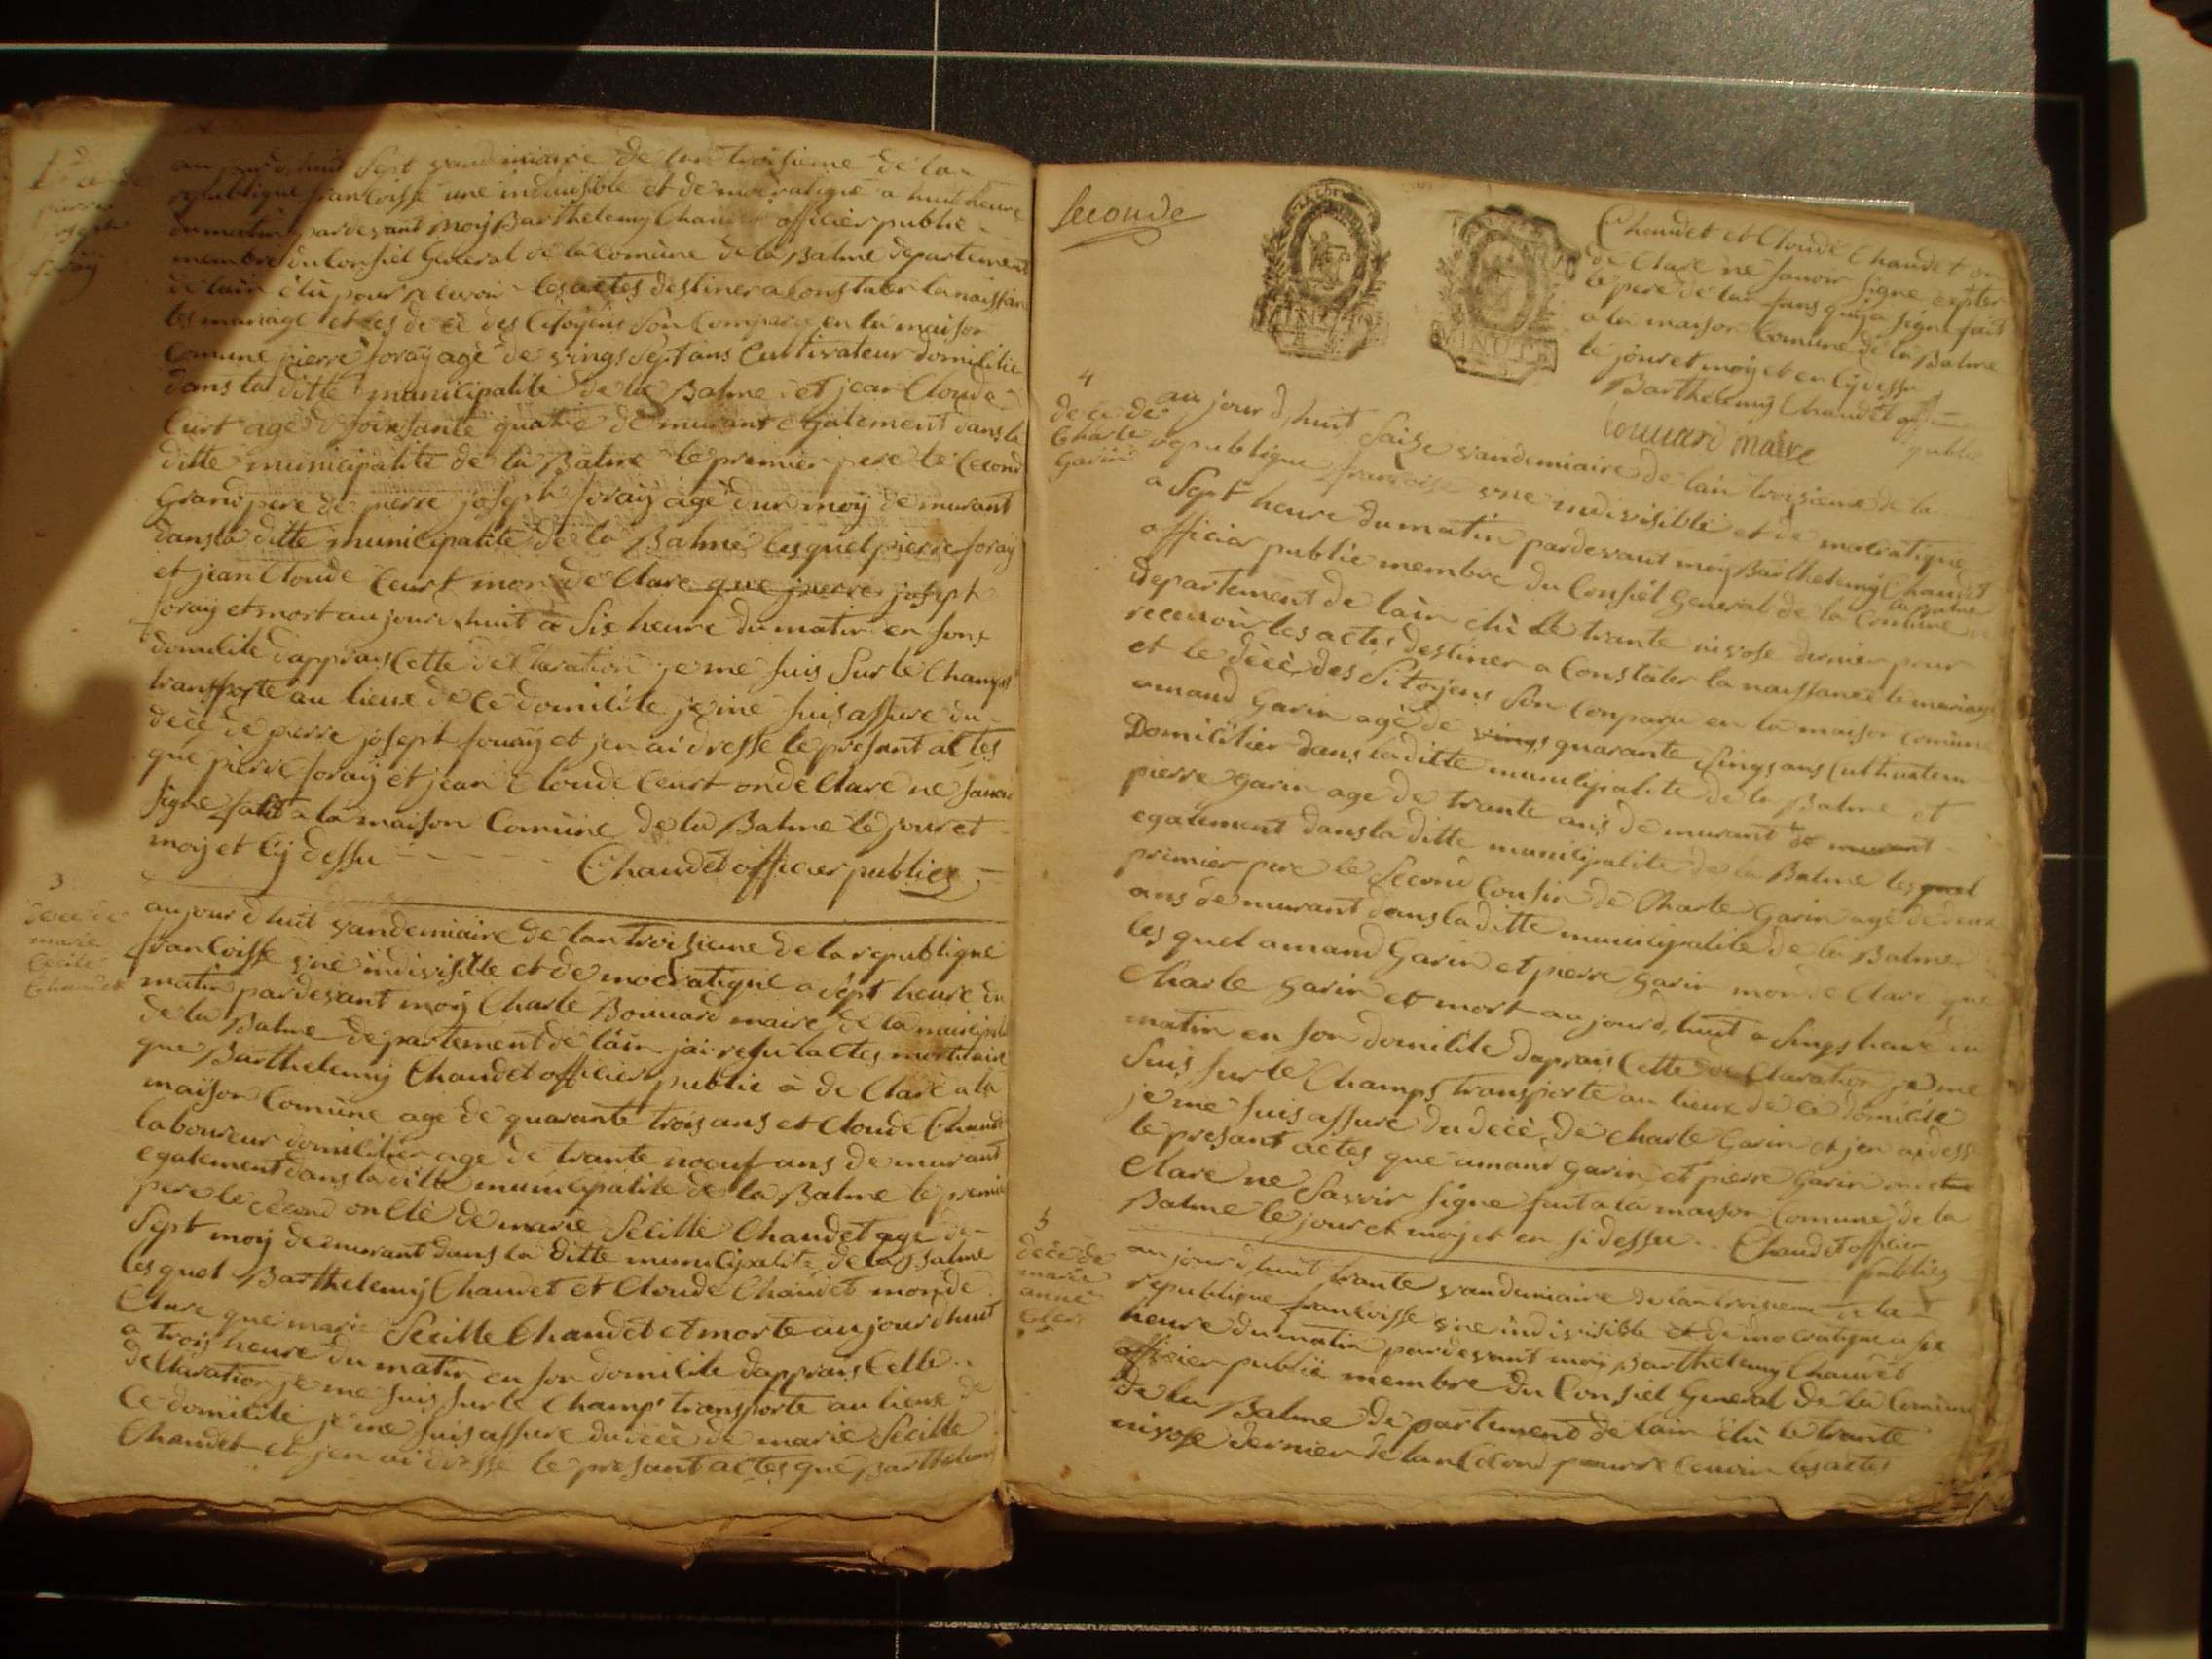 au jourd, huit Sept vandemiaire de lan troisieme de la
republique francoisse une indivisible et de mocratique a huit heure
du matin pardevant moy Barthelemy Chaudet officier public
membre du Consiel General de la Comune de la Balme departement
de lain élu pour recevoir les actes destiner a Constater la naissan
les mariage et les décè des Citoyens Son Comparu en la maison
Comune pierre foray agé de vings Sept ans Cultivateur domicilie
dans la ditte municipalité de la Balme et jean Cloude
Curt agé de soixsante quatre de murant egalement dans la
ditte municipalite de la Balme le premier pere le Cecond
Grand pere de pierre joseph foray agé dun moy de murant
dans la ditte municipalité de la Balme lesquel pierre foray
et jean Cloude Ceurt mon de Clare que pierre joseph
foray et mort au jourdhuit a Six heure du matin en son
domicile dapprais Cette declaration je me suis Sur le Champs
transporte au lieux de Ce domicile je me suis assure du
décè de pierre joseph fouray et jen ai dresse le presant actes
que pierre foray et jean Cloude Ceurt on de Clare ne savoir
signe fait a la maison Comune de la Balme le jour et
moy et Cy dessu Chaudet officier publics
3
décè de
marie
Cecile
Chaudet
aujourd huit vandemiaire de lan troisieme de la republique
francoisse une indivisible et de mocratique a Sept heure du
matin pardevant moy Charle Bouuard maire de la municipal
de la Balme departement de lain jai reсu lactes mortuaire
que Barthelemy Chaudet officier public à de Claré a la
maison Comune age de quarante trois ans et Cloude Chaudet
laboureur domicilier age de trante noeuf ans de murant
egalement dans la ditte municipalite de la Balme le premie
pere le Cecond oncle de marie Secille Chaudet age de
Sept moy demurant dans la ditte municipalite de la Balme
lesquel Barthelemy Chaudet et Cloude Chaudet mon de
Clare que marie Secille Chaudet et morte au jourdhuit
a trois heure du matin en son domicile dapprais Cette
declaration je me suis Sur le Champ transporte au lieux de
Ce domicile je me suis assure du décè de marie Secille
Chaudet et jen ai dresse le presant actes que Barthelemy
Seconde
Chaudet et Cloude Chaudet on
de Clare ne savoir signe
le pere de lanfans qui a signe fait
a la maison Comune de la Balme
le jour et moy et en Cy dessu
Barthelemy Chaudet
public
bouuard maire
4
decè de
Charle
Garin
au jour d, huit Saise vandemiaire de lan troisieme de la
republique francoise une indivisible et de mocratique
a Sept heure du matin pardevant moy Barthelemy Chaudet
officier public membre du Consiel General de la Comune de
la Balme
departement de lain élu le trante nivose dernier pour
recevoir les actes destiner a Constater la naissance le mariage
et le décè des Sitoyens Son Conparu en la maison Comune
amand Garin agé de vings quarante Sings ans Cultivateur
Domicilier dans la ditte municipalite de la Balme et
pierre Garin age de trante ans de murant de murant
egalement dans la ditte municipalite de la Balme lesquel
premier pere le Second Cousin de Charle Garin agé de deux
ans de murant dans la ditte municipalite de la Balme
lesquel amand Garin et pierre Garin mon de Clare que
Charle Garin et mort au jourd, huit a Sings heure du
matin en son domicile daprais Cette declaration je me
suis sur le Champs transporte au lieux de ce domicile
je me suis assure du décè, de charle Garin et jen ai dess
le presant actes que amand Garin et pierre Garin on de
Clare ne Savoir signe fait a la maison Comune, de la
Balme le jour et moy et en si dessu Chaudet officier
publics
5
décè de
marie
anne
au jour d, huit trante vandemiaire de lan troisieme de la
republique francoisse une indivisible et de mocratique a six
heure du matin pardevant moy Barthelemy Chaudet
officier public membre du Consiel General de la Comune
de la Balme departement de lain élu le trante
nivose dernier de lan Cecond pour recevoir les actes